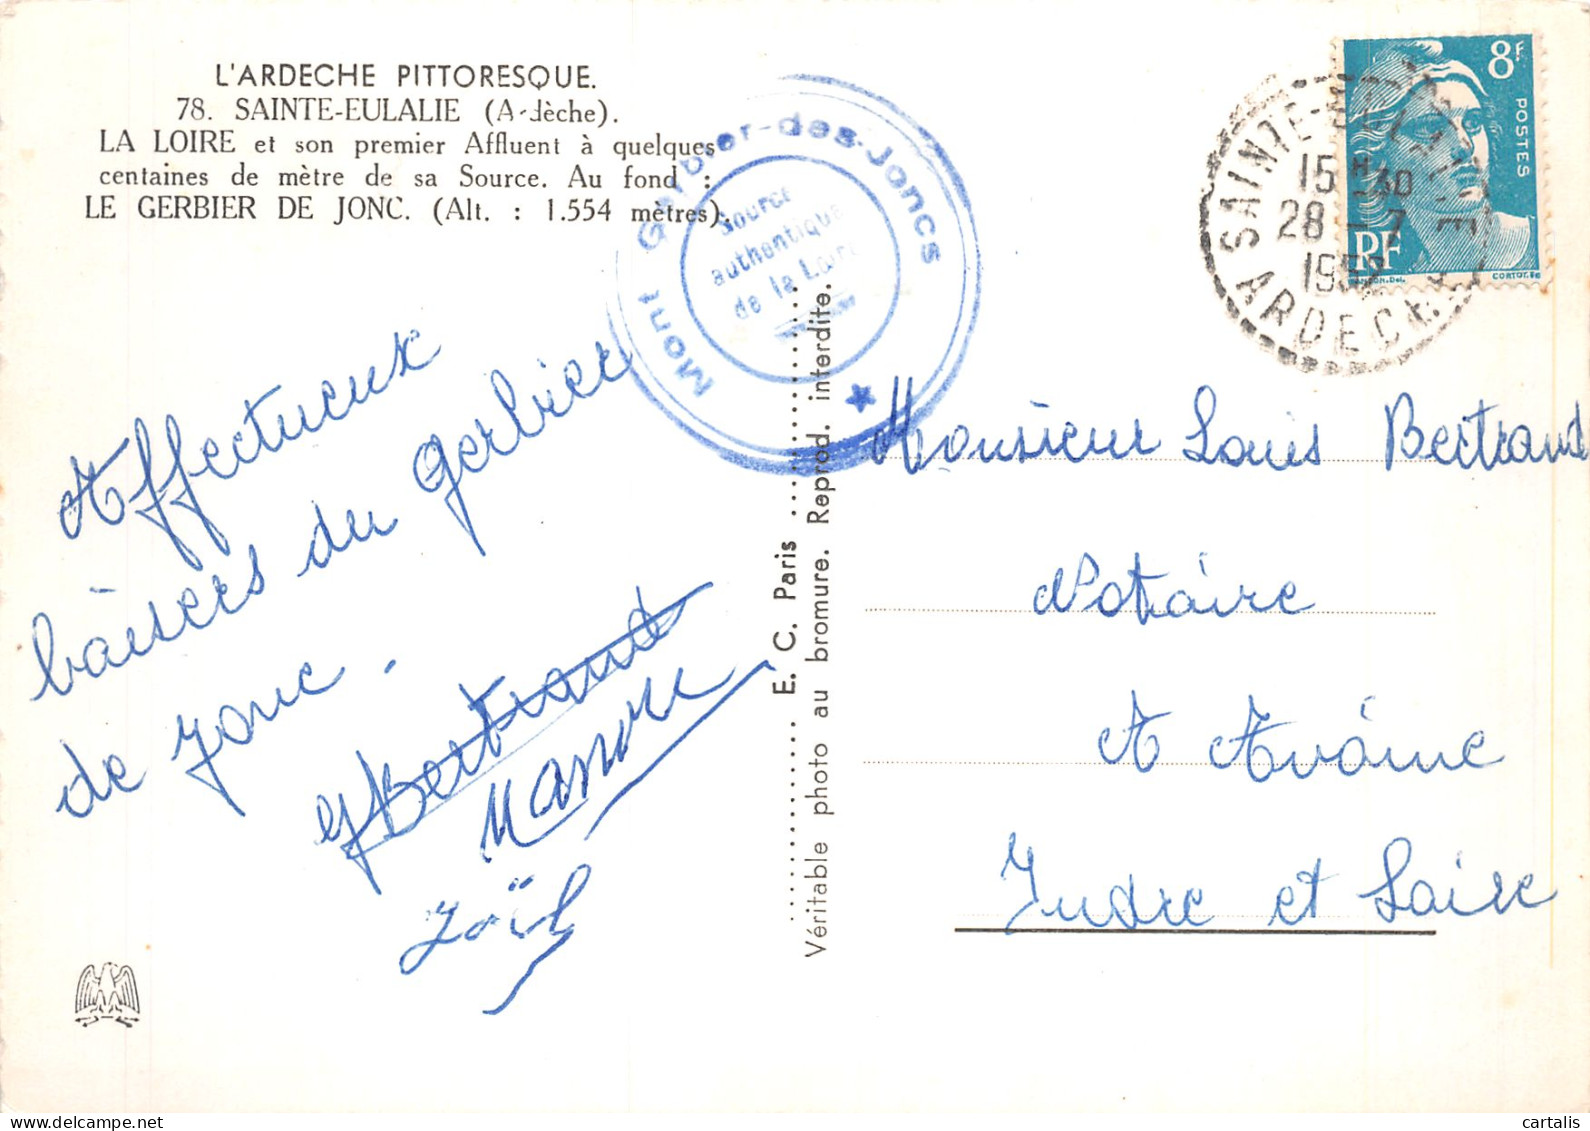 L'ARDECHE PITTORESQUE.
78. SAINTE-EULALIE (Ardèche).
LA LOIRE et son premier Affluent à quelques
centaines de mètre de sa Source. Au fond :
LE GERBIER DE JONC. (Alt. : 1.554 mètres).
Mont Gerbier-des-Joncs
Source
authentique
de la Loire
8F
POSTES
RF
GANDON.Del.
CORTOT.Sc
SAINTE-EULALIE
15H30
28 - 7
ARDECHE
Affectueux
baisers du Gerbier
de Jonc.
Bertrand
Manou
Joël
E. C. Paris
Véritable photo au bromure. Reprod. interdite.
Monsieur Louis Bertrand
Notaire
A Avoine
Indre et Loire
cartalis
cartalis.delcampe.net